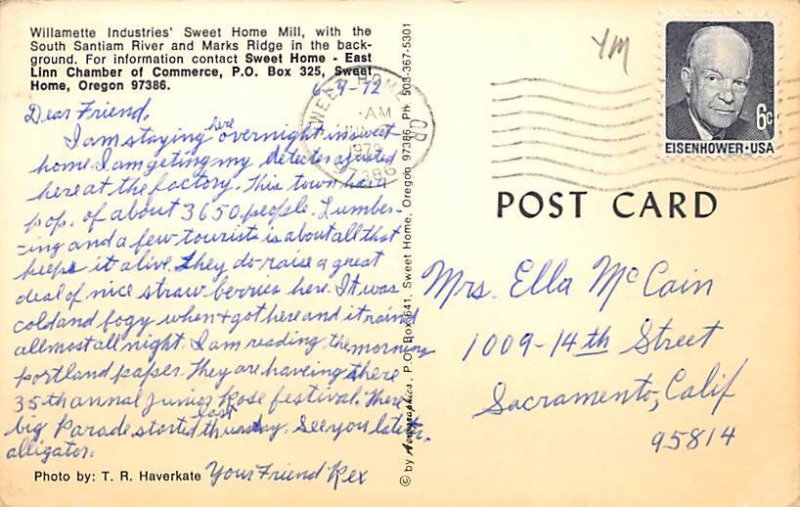 Willamette Industries' Sweet Home Mill, with the
South Santiam River and Marks Ridge in the back-
ground. For information contact Sweet Home - East
Linn Chamber of Commerce, P.O. Box 325, Sweet
Home, Oregon 97386.
6-9-72
Dear Friend,
I am staying here overnight in sweet
home. I am geting my detecter ajusted
here at the factory. This town has a
pop. of about 3650 people. Lumber-
ing and a few tourist is about all that
keeps it alive. They do raise a great
deal of nice straw berries here. It was
cold and fogy when I got here and it rained
allmost all night. I am reading the morning
portland paper. They are haveing there
35th annal Junior Rose festival. There
big Parade started last thursday. See you later
alligator.
Your Friend Rex
Photo by: T. R. Haverkate
© by P.O. Box 641, Sweet Home, Oregon 97386 PH 503-367-5301
SWEET HOME, OR
AM
97386
YM
6c
EISENHOWER·USA
POST CARD
Mrs. Ella McCain
1009-14th Street
Sacramento, Calif
95814